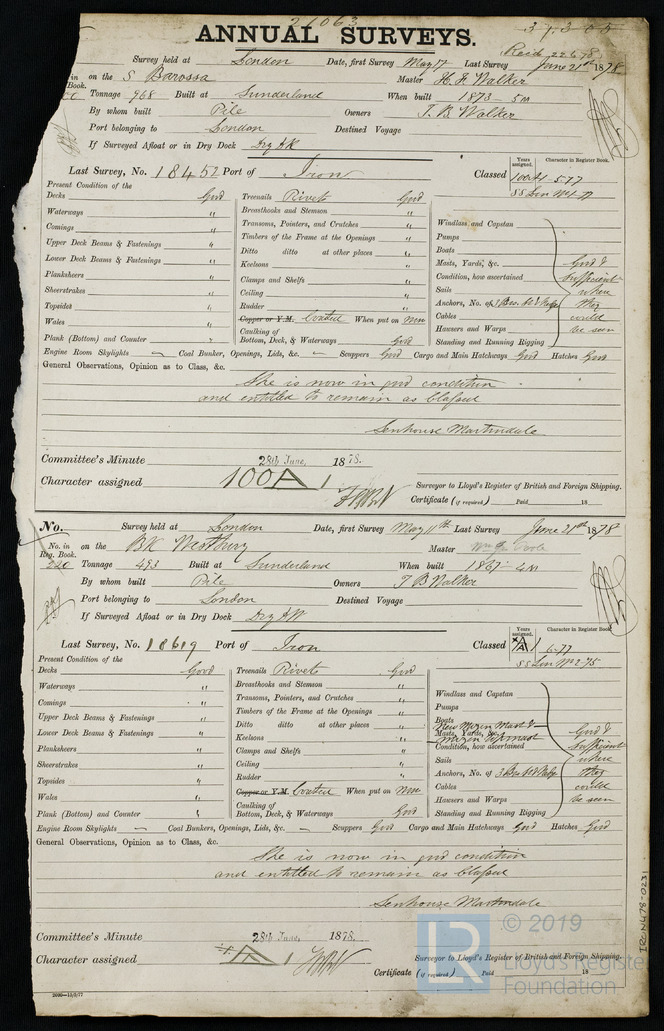 21063
31305
ANNUAL SURVEYS.
Reid 22.6.78
Survey held at London Date, first Survey May 17 Last Survey June 21st 1878
in on the S Barossa Master H. H. Walker
Book.
Tonnage 968 Built at Sunderland When built 1873 - 5m
By whom built Pile Owners T. B. Walker
Port belonging to London Destined Voyage
If Surveyed Afloat or in Dry Dock Dry DK
Last Survey, No. 18452 Port of Iron Classed Years assigned. Character in Register Book.
100A1 - 5.77
SS Lon No 1-77
Present Condition of the
Decks Good Treenails Rivets Good
Waterways " Breasthooks and Stemson " Windlass and Capstan
Comings " Transoms, Pointers, and Crutches " Pumps
Upper Deck Beams & Fastenings " Timbers of the Frame at the Openings " Boats
Lower Deck Beams & Fastenings " Ditto ditto at other places " Masts, Yards, &c. Good &
Planksheers " Keelsons " Condition, how ascertained Sufficient
Sheerstrakes " Clamps and Shelfs " Sails where
Topsides " Ceiling " Anchors, No. of 3 Bow they
Wales " Rudder " Cables could
Copper or Y.M. Coated When put on now Hawsers and Warps be seen
Plank (Bottom) and Counter " Caulking of Bottom, Deck, & Waterways Good Standing and Running Rigging
Engine Room Skylights — Coal Bunker, Openings, Lids, &c. — Scuppers Good Cargo and Main Hatchways Good Hatches Good
General Observations, Opinion as to Class, &c.
She is now in good condition
and entitled to remain as Classed
Senhouse Martindale
Committee's Minute 28th June, 1878.
Character assigned 100A1
Surveyor to Lloyd's Register of British and Foreign Shipping.
Certificate (if required) Paid 18
No. Survey held at London Date, first Survey May 11th Last Survey June 21st 1878
No. in Reg. Book. on the BK Westbury Master
220 Tonnage 493 Built at Sunderland When built 1867 - 4m
By whom built Pile Owners T B Walker
Port belonging to London Destined Voyage
If Surveyed Afloat or in Dry Dock Dry DK
Last Survey, No. 18619 Port of Iron Classed Years assigned. Character in Register Book.
A 1 6-77
SS Lon No 2-75
Present Condition of the
Decks Good Treenails Rivets Good
Waterways " Breasthooks and Stemson " Windlass and Capstan
Comings " Transoms, Pointers, and Crutches " Pumps
Upper Deck Beams & Fastenings " Timbers of the Frame at the Openings " Boats
New Mizen Mast &
Lower Deck Beams & Fastenings " Ditto ditto at other places " Masts, Yards, &c. Good &
Mizen Topmast
Planksheers " Keelsons " Condition, how ascertained Sufficient
Sheerstrakes " Clamps and Shelfs " Sails where
Topsides " Ceiling " Anchors, No. of 3 Bow they
Wales " Rudder " Cables could
Copper or Y.M. Coated When put on now Hawsers and Warps be seen
Plank (Bottom) and Counter " Caulking of Bottom, Deck, & Waterways Good Standing and Running Rigging
Engine Room Skylights — Coal Bunkers, Openings, Lids, &c. — Scuppers Good Cargo and Main Hatchways Good Hatches Good
General Observations, Opinion as to Class, &c.
She is now in good condition
and entitled to remain as Classed
Senhouse Martindale
Committee's Minute 28th June, 1878.
Character assigned A 1
Surveyor to Lloyd's Register of British and Foreign Shipping.
Certificate (if required) Paid 18
2000—13/2/77
IRON478-0231
© 2019
LR
Lloyd's Register
Foundation